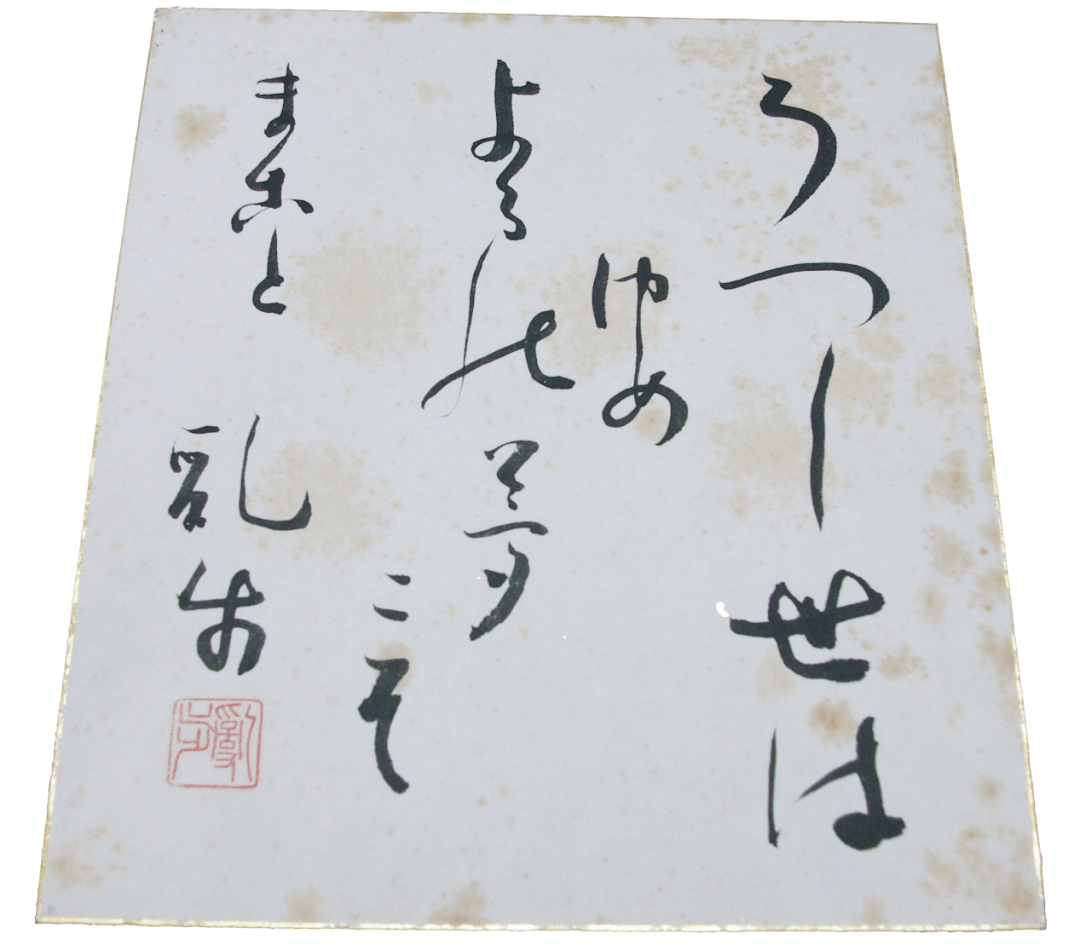 うつし世は
ゆめ
よるの夢
こそ
まこと
乱歩
乱歩